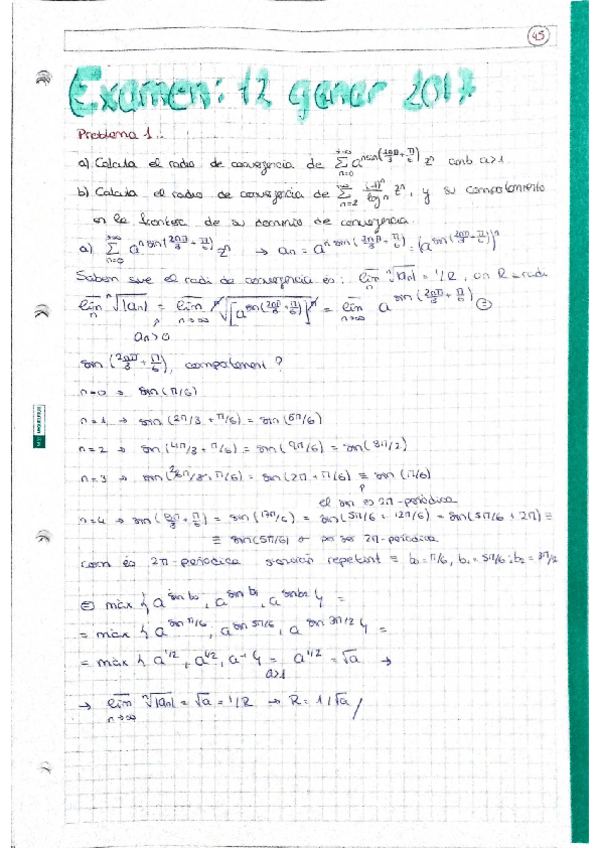 45
Examen: 12 gener 2017
Problema 1.-
a) Calcula el radio de convergencia de ∑_{n=0}^{+∞} a^{n sin(2nπ/3 + π/6)} z^n amb a>1.
b) Calcula el radio de convergencia de ∑_{n=2}^{+∞} (-1)^n/log n z^n, y su comportamiento
en la frontera de su dominio de convergencia.
a) ∑_{n=0}^{+∞} a^{n sin(2nπ/3 + π/6)} z^n → an = a^{n sin(2nπ/3 + π/6)} = (a^{sin(2nπ/3 + π/6)})^n
Sabem que el radi de convergencia es: lim_n ⁿ√|an| = 1/R, on R = radi
lim_n ⁿ√|an| = lim_{n→∞} ⁿ√[a^{sin(2nπ/3 + π/6)}]^n = lim_{n→∞} a^{sin(2nπ/3 + π/6)} =
an>0
sin(2nπ/3 + π/6), comportament?
n=0 → sin(π/6)
n=1 → sin(2π/3 + π/6) = sin(5π/6)
n=2 → sin(4π/3 + π/6) = sin(9π/6) = sin(3π/2)
n=3 → sin(6π/3 + π/6) = sin(2π + π/6) = sin(π/6)
el sin es 2π-periòdica
n=4 → sin(8π/3 + π/6) = sin(17π/6) = sin(5π/6 + 12π/6) = sin(5π/6 + 2π) =
= sin(5π/6) per ser 2π-periòdica
com és 2π-periòdica s'aniran repetint = b0=π/6, b1=5π/6, b2=3π/2
= màx {a^{sin b0}, a^{sin b1}, a^{sin b2}} =
= màx {a^{sin π/6}, a^{sin 5π/6}, a^{sin 3π/2}} =
= màx {a^{1/2}, a^{1/2}, a^{-1}} = a^{1/2} = √a →
a>1
→ lim_{n→∞} ⁿ√|an| = √a = 1/R → R = 1/√a